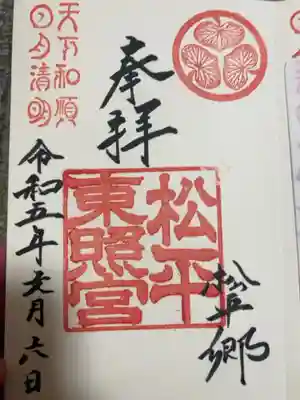 奉拝
松平
東照宮
松平郷
天下和順
日月清明
令和五年元月六日